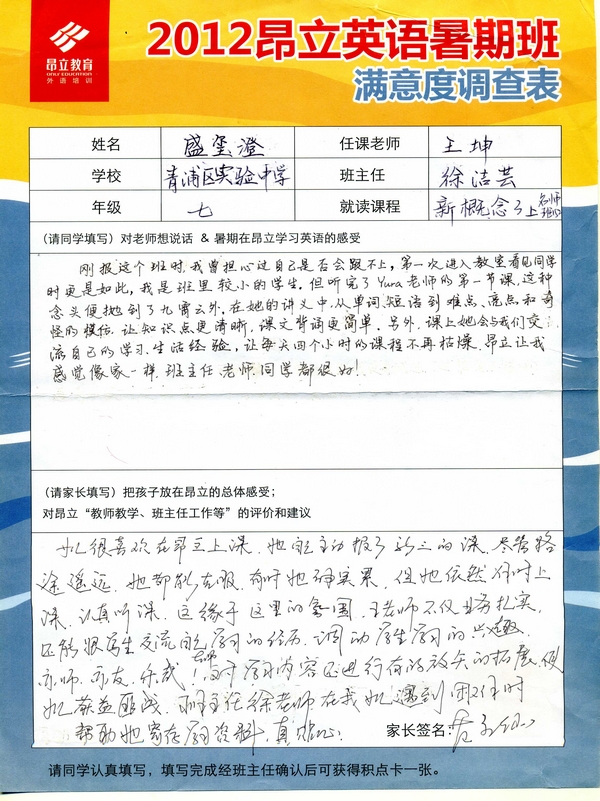 昂立教育
ONLY EDUCATION
外语培训
2012昂立英语暑期班
满意度调查表
姓名 盛玺澄 任课老师 王坤
学校 青浦区实验中学 班主任 徐洁芸
年级 七 就读课程 新概念3上名师班
(请同学填写) 对老师想说话 & 暑期在昂立学习英语的感受
刚报这个班时,我曾担心过自己是否会跟不上,第一次进入教室看见同学
时更是如此,我是班里较小的学生。但听完了Yura老师的第一节课,这种
念头便抛到了九霄云外,在她的讲义中,从单词、短语到难点、亮点和奇
怪的模仿,让知识点更清晰,课文背诵更简单。另外,课上她会与我们交
流自己的学习、生活经验,让每天四个小时的课程不再枯燥。昂立让我
感觉像家一样,班主任、老师、同学都很好!
(请家长填写) 把孩子放在昂立的总体感受;
对昂立“教师教学、班主任工作等”的评价和建议
很喜欢在昂立上课,她自己主动报了新三的课,尽管路
途遥远,她都能克服,有时她确实累,但她依然准时上
课,认真听课,这缘于这里的氛围,王老师不仅业务扎实,
还能跟学生交流自己学习的经历,调动学生学习的兴趣,
亦师、亦友,对学习内容还进行有的放矢的拓展,使
获益匪浅,班主任徐老师在我遇到困难时
帮助她寄存学习资料,真贴心!
家长签名:
请同学认真填写,填写完成经班主任确认后可获得积点卡一张。